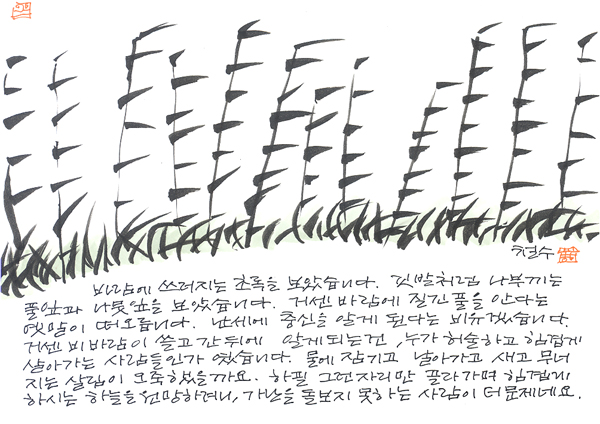 철수
바람에 쓰러지는 초록을 보았습니다. 깃발처럼 나부끼는
풀잎과 나뭇잎을 보았습니다. 거센 바람에 질긴 풀을 안다는
옛말이 떠오릅니다. 난세에 충신을 알게 된다는 비유겠습니다.
거센 비바람이 쓸고 간 뒤에 알게되는건, 누가 허술하고 힘겹게
살아가는 사람들인가 였습니다. 물에 잠기고 날아가고 새고 무너
지는 살림이 오죽했을까요. 하필 그런자리만 골라가며 힘겹게
하시는 하늘을 원망하려니, 가난을 돌보지 못하는 사람이 더 문제네요.